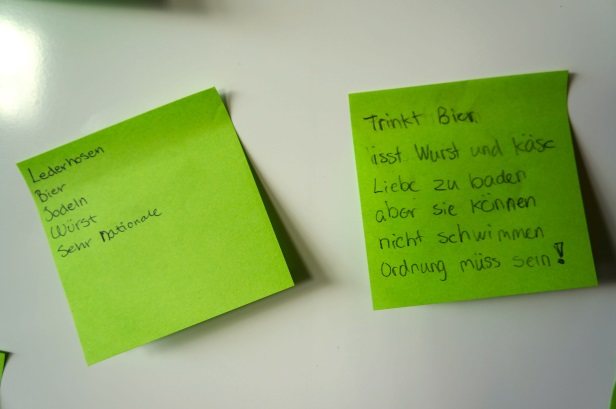 Lederhosen
Bier
Jodeln
Würst
Sehr nationale
Trinkt Bier
isst Wurst und käse
Liebe zu baden
aber sie können
nicht schwimmen
Ordnung müss sein!